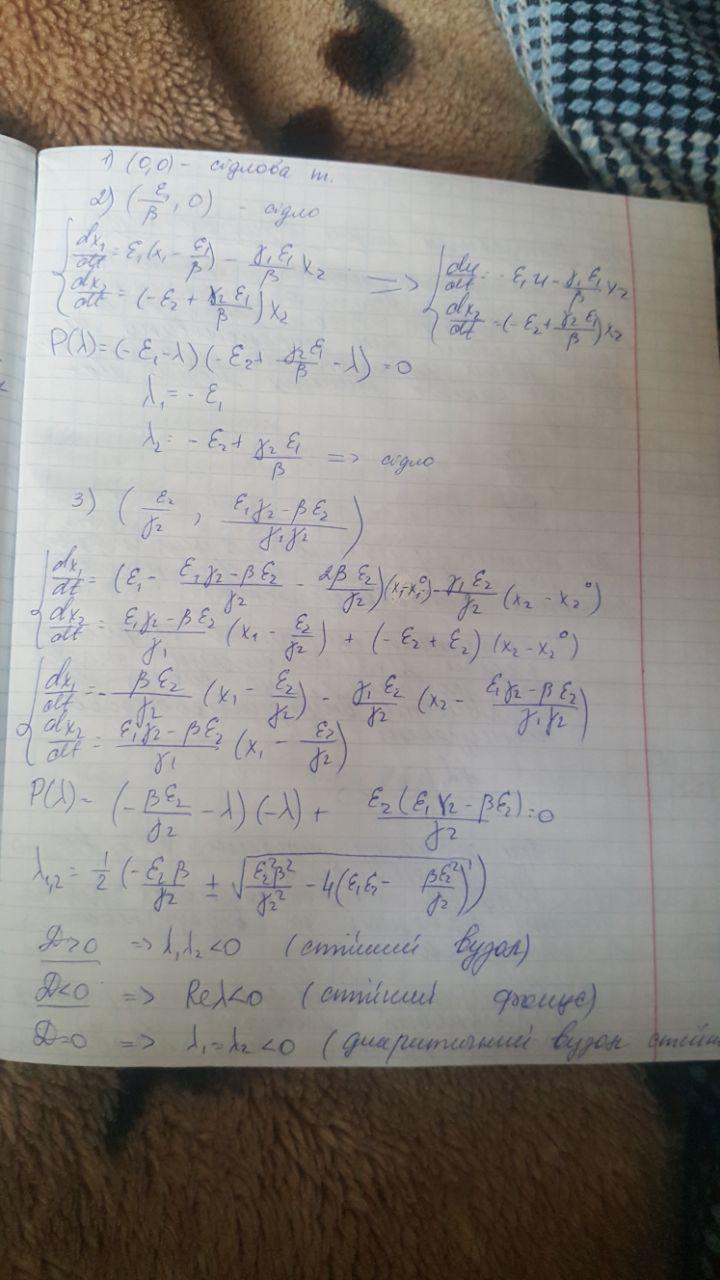 1) (0,0) - сідлова т.
2) (ε₁/β, 0) - сідло
{ dx₁/dt = ε₁(x₁ - ε₁/β) - γ₁ε₁/β x₂ => { du/dt = -ε₁u - γ₁ε₁/β x₂
{ dx₂/dt = (-ε₂ + γ₂ε₁/β) x₂ { dx₂/dt = (-ε₂ + γ₂ε₁/β) x₂
P(λ) = (-ε₁-λ)(-ε₂+ γ₂ε₁/β - λ) = 0
λ₁ = -ε₁
λ₂ = -ε₂ + γ₂ε₁/β => сідло
3) (ε₂/γ₂, (ε₁γ₂ - βε₂)/(γ₁γ₂))
{ dx₁/dt = (ε₁ - (ε₁γ₂ - βε₂)/γ₂ - 2βε₂/γ₂)(x₁-x₁⁰) - γ₁ε₂/γ₂ (x₂ - x₂⁰)
{ dx₂/dt = (ε₁γ₂ - βε₂)/γ₁ (x₁ - ε₂/γ₂) + (-ε₂ + ε₂)(x₂ - x₂⁰)
{ dx₁/dt = - βε₂/γ₂ (x₁ - ε₂/γ₂) - γ₁ε₂/γ₂ (x₂ - (ε₁γ₂ - βε₂)/(γ₁γ₂))
{ dx₂/dt = (ε₁γ₂ - βε₂)/γ₁ (x₁ - ε₂/γ₂)
P(λ) = (- βε₂/γ₂ - λ)(-λ) + ε₂(ε₁γ₂ - βε₂)/γ₂ = 0
λ₁,₂ = 1/2 (- ε₂β/γ₂ ± √(ε₂²β²/γ₂² - 4(ε₁ε₂ - βε₂²/γ₂)))
D>0 => λ₁λ₂<0 (стійкий вузол)
D<0 => Reλ<0 (стійкий фокус)
D=0 => λ₁=λ₂<0 (дикритичний вузол